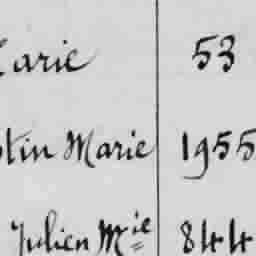 Marie 53
tin Marie 1955
Julien Mie 844